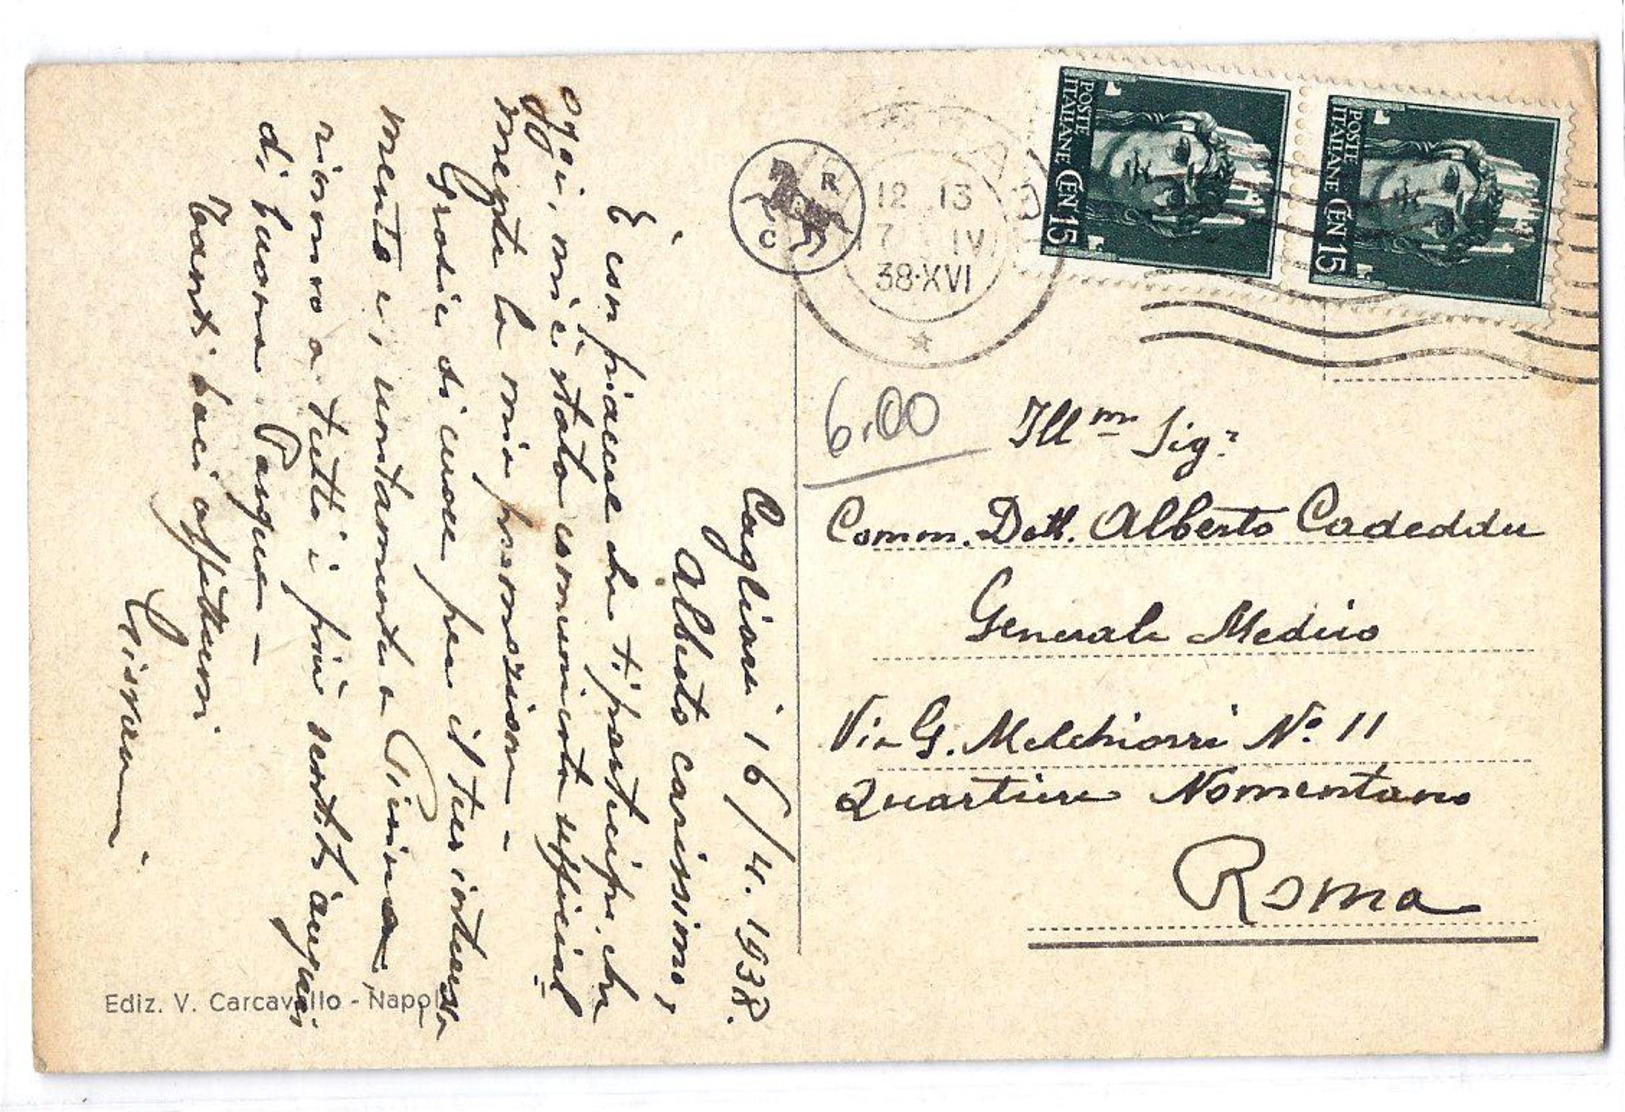 Cagliari 16/4.1938.
Alberto carissimo,
È con piacere che ti partecipo che
oggi, mi è stata comunicata ufficial
mente la mia promozione -
Grazie di cuore per il tuo interessa
mento e, unitamente a Pierina,
ricamo a tutti i più sentiti auguri
di buona Pasqua -
Tanti baci affettuosi
12 13
17 IV
38·XVI
R
C
POSTE
ITALIANE CEN 15
POSTE
ITALIANE CEN 15
6.00
Illmo Sigr
Comm. Dott. Alberto Cadeddu
Generale Medico
Via G. Melchiorri No 11
Quartiere Nomentano
Roma
Ediz. V. Carcavallo - Napoli